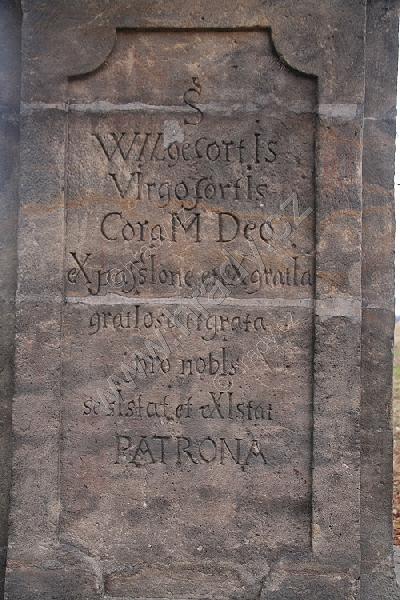 S
WILgefortIs
VIrgofortIs
CoraM Deo
eXpassIone et eX graIIa
graIIosa et grata
pro nobIs
se sIstat et eXIstat
PATRONA